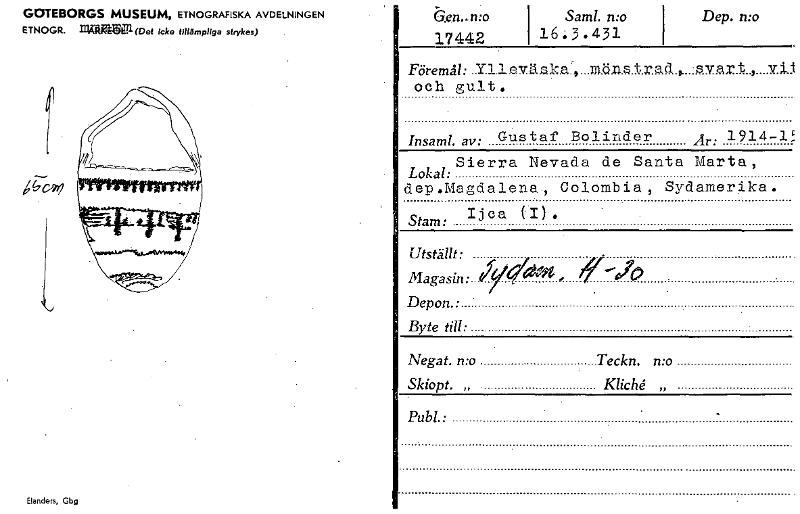 GÖTEBORGS MUSEUM, ETNOGRAFISKA AVDELNINGEN
ETNOGR. (Det icke tillämpliga strykes)
65cm
Elanders, Gbg
Gen. n:o Saml. n:o Dep. n:o
17442 16.3.431
Föremål: Ylleväska, mönstrad, svart, vit
och gult.
Insaml. av: Gustaf Bolinder År: 1914-15
Lokal: Sierra Nevada de Santa Marta,
dep.Magdalena, Colombia, Sydamerika.
Stam: Ijca (I).
Utställt:
Magasin: Sydam. H-30
Depon.:
Byte till:
Negat. n:o Teckn. n:o
Skiopt. „ Kliché „
Publ.: